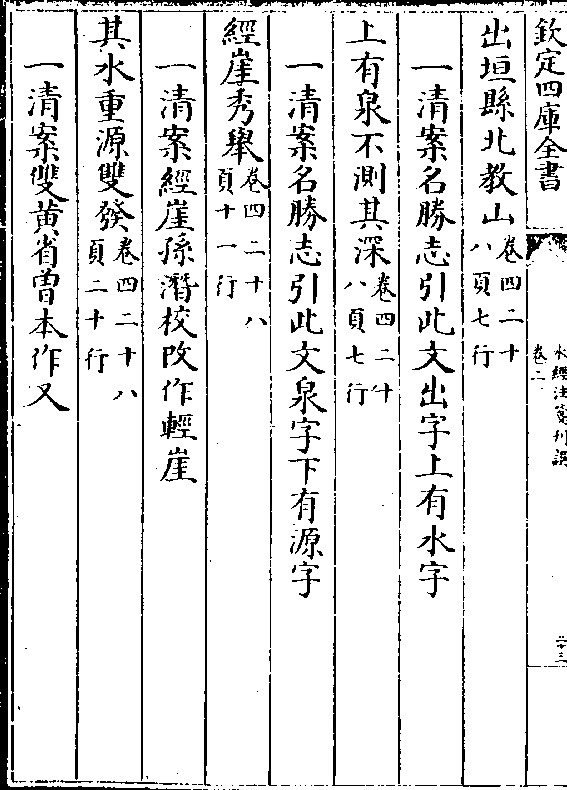 欽定四庫全書
水經注箋刊誤
卷二
二十三
出垣縣北教山卷四二十八頁七行
一清案名勝志引此文出字上有水字
上有泉不測其深卷四二十八頁七行
一清案名勝志引此文泉字下有源字
經崖秀舉卷四二十八頁十一行
一清案經崖孫潛校改作輕崖
其水重源雙發卷四二十八頁二十行
一清案雙黃省曾本作又